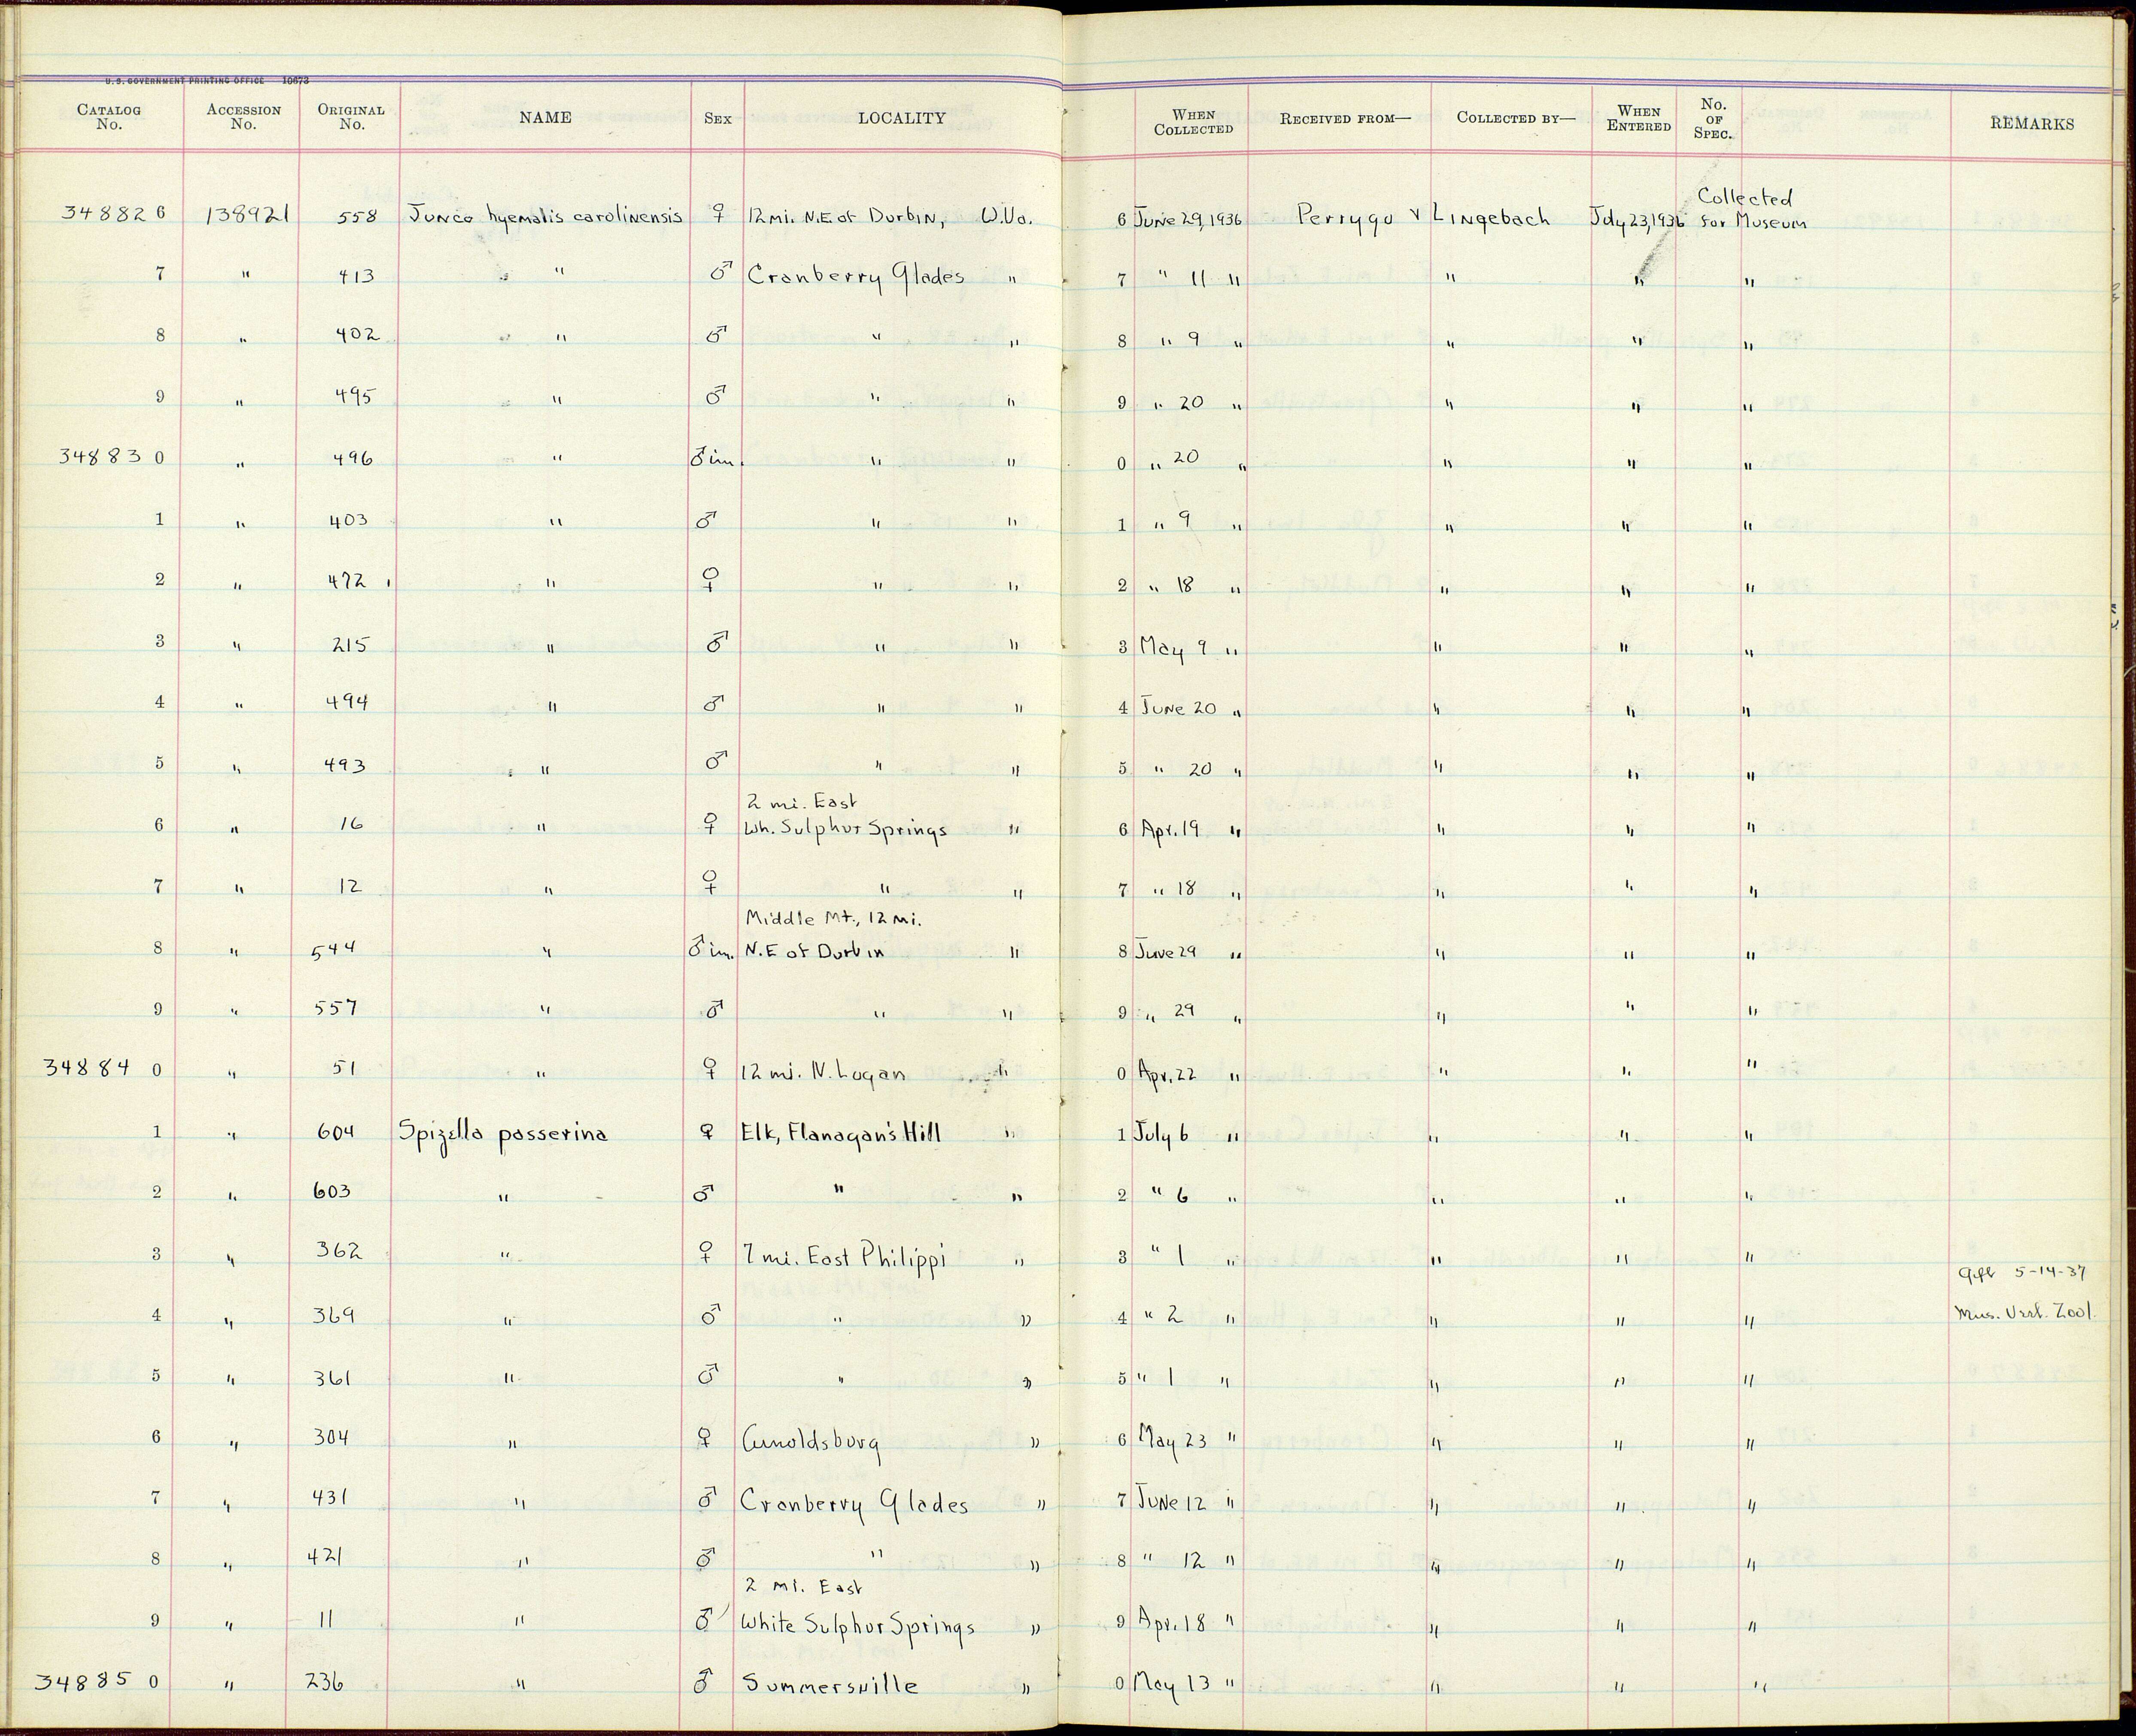 U. S. GOVERNMENT PRINTING OFFICE 10673
CATALOG No. ACCESSION No. ORIGINAL No. NAME SEX LOCALITY WHEN COLLECTED RECEIVED FROM— COLLECTED BY— WHEN ENTERED No. OF SPEC. REMARKS
348826 138921 558 Junco hyemalis carolinensis ♀ 12 mi. N.E of Durbin, W.Va. 6 June 29, 1936 Perrygo & Lingebach July 23, 1936 Collected for Museum
7 " 413 " " ♂ Cranberry Glades " 7 " 11 " " " "
8 " 402 " " ♂ " " 8 " 9 " " " "
9 " 495 " " ♂ " " 9 " 20 " " " "
348830 " 496 " ♂ im. " " 0 " 20 " " " "
1 " 403 " ♂ " " 1 " 9 " " " "
2 " 472 " ♀ " " 2 " 18 " " " "
3 " 215 " ♂ " " 3 May 9 " " " "
4 " 494 " ♂ " " 4 June 20 " " " "
5 " 493 " " ♂ " " 5 " 20 " " " "
2 mi. East
6 " 16 " ♀ Wh. Sulphur Springs " 6 Apr. 19 " " " "
7 " 12 " ♀ " " 7 " 18 " " " "
Middle Mt., 12 mi.
8 " 544 " ♂ im. N.E of Durbin " 8 June 29 " " " "
9 " 557 " ♂ " " 9 " 29 " " " "
348840 " 51 " ♀ 12 mi. N. Logan " 0 Apr. 22 " " " "
1 " 604 Spizella passerina ♀ Elk, Flanagan's Hill " 1 July 6 " " " "
2 " 603 " ♂ " " 2 " 6 " " " "
3 " 362 " ♀ 7 mi. East Philippi " 3 " 1 " " " "
Gift 5-14-37
4 " 369 " ♂ " " 4 " 2 " " " " Mus. Vert. Zool.
5 " 361 " ♂ " " 5 " 1 " " " "
6 " 304 " ♀ Arnoldsburg " 6 May 23 " " " "
7 " 431 " ♂ Cranberry Glades " 7 June 12 " " " "
8 " 421 " ♂ " " 8 " 12 " " " "
2 mi. East
9 " 11 " ♂ White Sulphur Springs " 9 Apr. 18 " " " "
348850 " 236 " ♂ Summersville " 0 May 13 " " " "